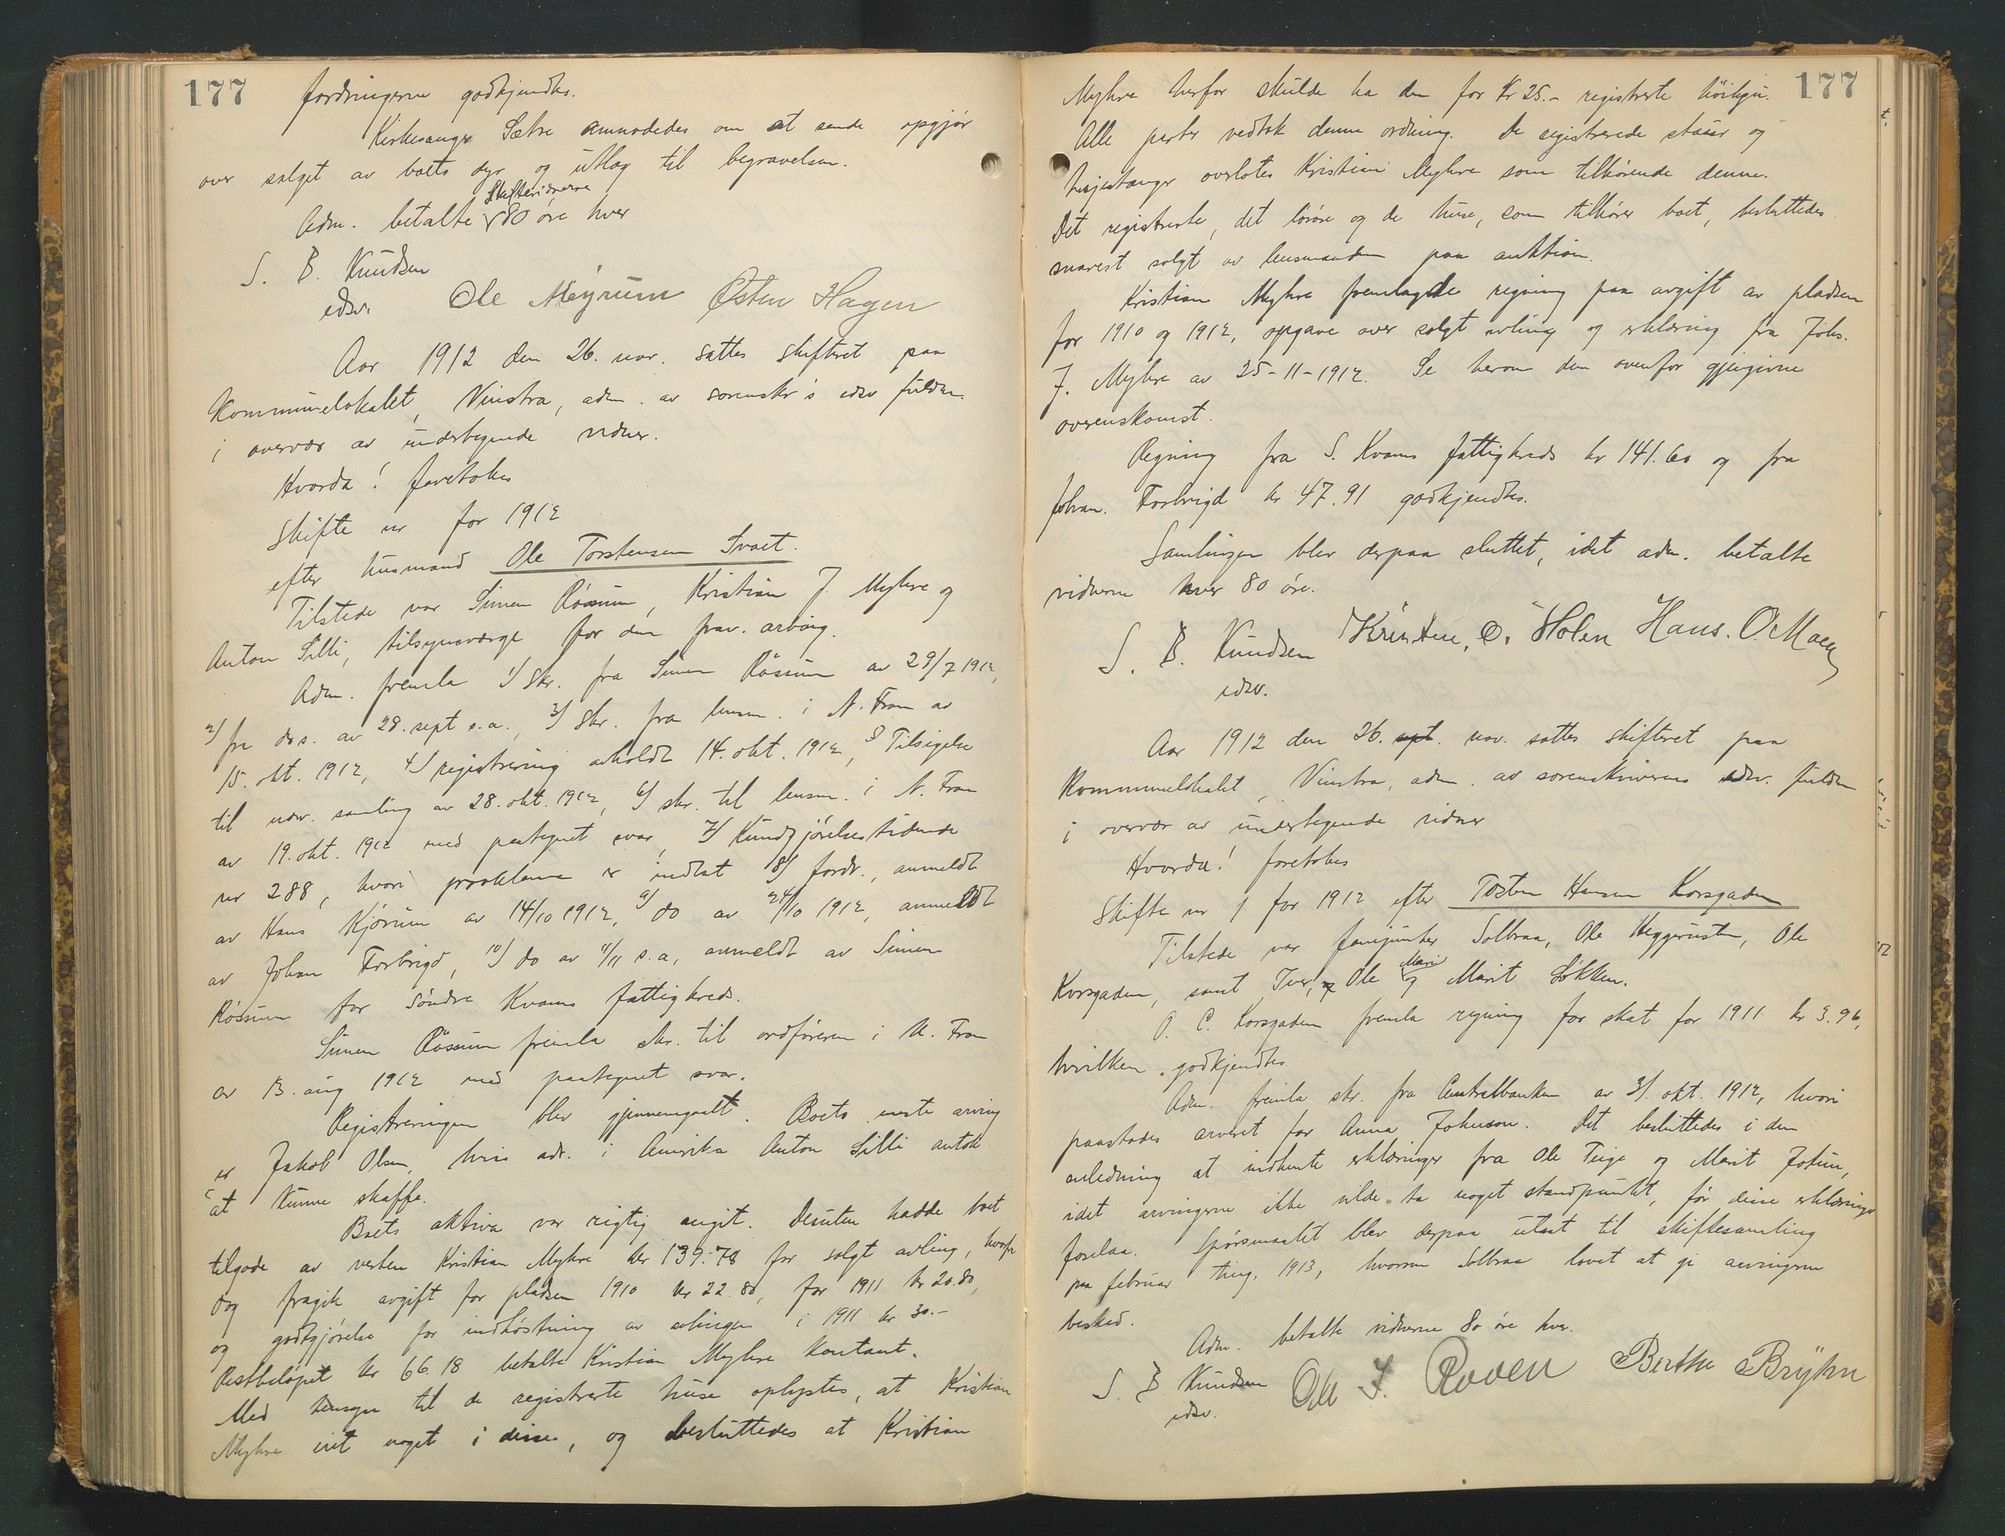 177
fordringerne godkjendtes.
Kirkesanger Sætre anmodedes om at sende opgjør
over salget av boets dyr og utlæg til begravelsen.
Skiftevidnerne
Adm. betalte 80 øre hver
S. B. Knudsen
edsv.
Ole Meyrum Østen Hagen
Aar 1912 den 26. nov. sattes skifteret paa
Kommunelokalet, Vinstra, adm. av sorenskr's edsv fuldm.
i overvær av undertegnede vidner.
Hvorda! foretokes
Skifte nr for 1912
efter husmand Ole Torstensen Svaet.
Tilstede var Simen Røssum, Kristian J. Myhre og
Anton Lilli, tilsynsværge for den frav. arving.
Adm. fremla 1/ Skr. fra Simen Røssum av 29/7 1912,
2/ fra do s. av 28. sept s.a., 3/ Skr. fra lensm. i N. Fron av
15. okt. 1912, 4/ registrering avholdt 14. okt. 1912, 5/ Tilsigelse
til udv. samling av 28. okt. 1912, 6/ skr. til lensm. i N. Fron
av 19. okt. 1912 med paategnet svar, 7/ Kundgjørelsestidende
nr 288, hvori proklama er indtat 8/ fordr., anmeldt
av Hans Kjørum av 14/10 1912, 9/ do av 24/10 1912, anmeldt
av Johan Forbrigd, 10/ do av 11/11 s.a, anmeldt av Simen
Røssum for Søndre Kvams fattigkreds.
Simen Røssum fremla skr. til ordføreren i N. Fron
av 13. aug 1912 med paategnet svar.
Registreringen blev gjennemgaat. Boets eneste arving
er Jakob Olsen, hvis adr. i Amerika Anton Lilli antok
at kunne skaffe.
Boets aktiva var rigtig angit. Desuten hadde boet
tilgode av verten Kristian Myhre kr 139.78 for solgt avling, hvorfra
dog fragik avgift for pladsen 1910 kr 22.80, for 1911 kr 20.80,
og godtgjørelse for indhøstning av avlingen i 1911 kr 30.-
Restbeløpet kr 66.18 betalte Kristian Myhre kontant.
Med hensyn til de registrerte huse oplystes, at Kristian
Myhre eiet noget i disse, og besluttedes at Kristian
177
Myhre herfor skulde ha den for kr 25.- registrerte
Alle parter vedtok denne ordning. De registrerede staur og
hesjestænger overlotes Kristian Myhre som tilhørende denne.
Det registrerte, det løsøre og de huse, som tilhører boet, besluttedes
snarest solgt av lensmanden paa auktion.
Kristian Myhre fremlagde regning paa avgift av pladsen
for 1910 og 1912, opgave over solgt avling og erklæring fra Johs.
J. Myhre av 25-11-1912. Se herom den ovenfor gjengivne
overenskomst.
Regning fra S. Kvams fattigkreds kr 141.60 og fra
Johan. Forbrigd kr 47.91 godkjendtes.
Samlingen blev derpaa sluttet, idet adm. betalte
vidnerne hver 80 øre.
S. B. Knudsen
edsv.
Kristen. O. Holen Hans. O. Moen
Aar 1912 den 26. sept. nov. sattes skifteret paa
Kommunelokalet, Vinstra, adm. av sorenskriverens edsv. fuldm
i overvær av undertegnede vidner
Hvorda! foretokes
Skifte nr 1 for 1912 efter Tosten Hansen Korsgaden
Tilstede var fanejunker Solbraa, Ole Heggerusten, Ole
Korsgaden, samt Iver, Ole Mari og Marit Løkken.
O. C. Korsgaden fremla regning for skat for 1911 kr 3.96,
hvilken godkjendtes
Adm. fremla skr. fra Centralbanken av 31. okt. 1912, hvori
paastodes arveret for Anna Johnson. Det besluttedes i den
anledning at indhente erklæringer fra Ole Teige og Marit
idet arvingerne ikke vilde ta noget standpunkt, før disse erklæringer
forelaa. Spørsmaalet blev derpaa utsat til skiftesamling
paa februar ting. 1913, hvorom Solbraa lovet at gi arvingerne
besked.
Adm. betalte vidnerne 80 øre hver.
S. B. Knudsen
edsv.
Ole J. Roven Berthe Bryhn